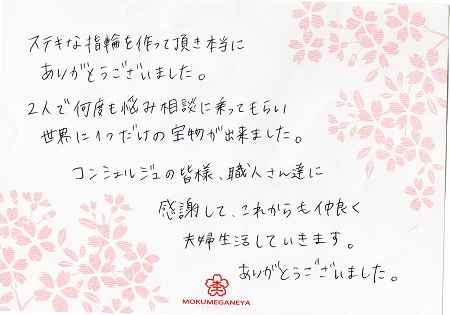 ステキな指輪を作って頂き本当に
ありがとうございました。
2人で何度も悩み相談に乗ってもらい
世界に1つだけの宝物が出来ました。
コンシェルジュの皆様、職人さん達に
感謝して、これからも仲良く
夫婦生活していきます。
ありがとうございました。
MOKUMEGANEYA